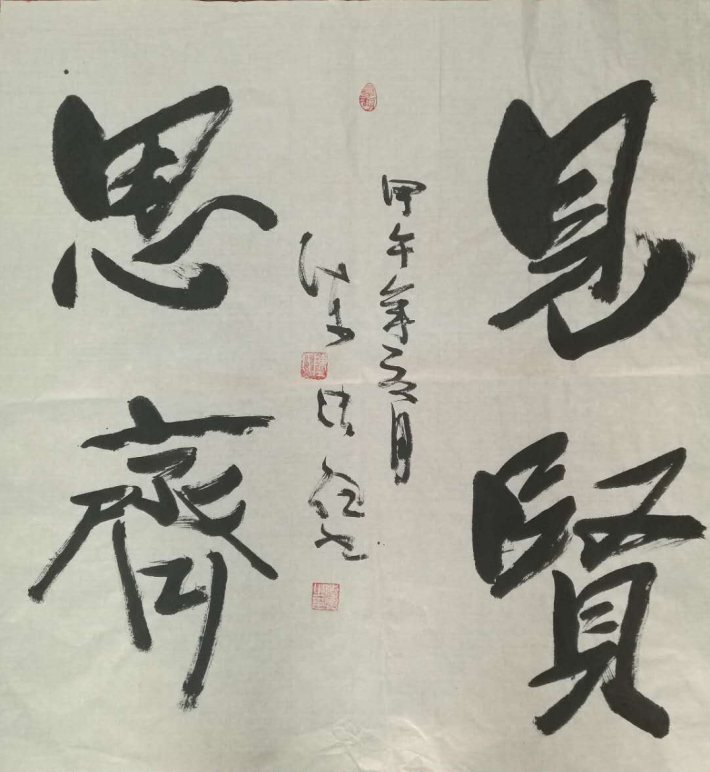 見賢
思齊
甲午年三月